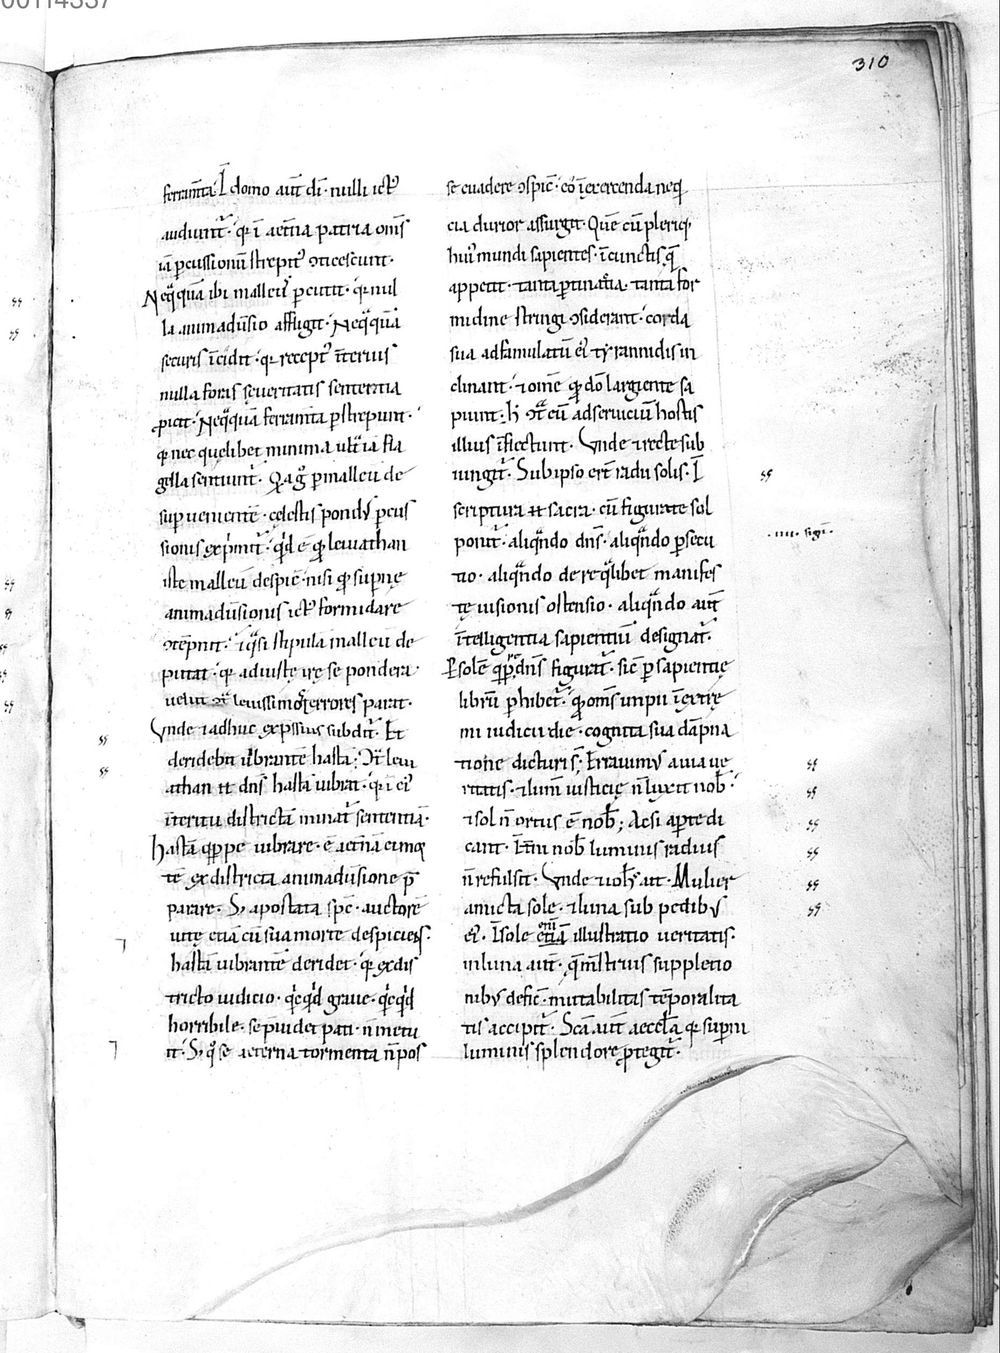 310
ferram̄ta. I domo aut̄ di. nulli ict᷒
audiunt᷑. qꝛ ī aet̄na patria om̄s
iā ꝑcussionū strepit᷒ ↄticescunt.
Neq̄quā ibi malleus ꝑcutit. qꝛ nul
la animadūsio affligit. Neq̄quā
securis īcidit. qꝛ recept᷒ īterius
nulla foris seueritatis sententia
ꝓicit. Neq̄quā ferram̄ta ꝑstrepunt.
qꝛ nec quelibet minima ult̄ ia fla
gella sentiunt᷑. Qa gͦ ꝑ malleū de
sup ueniente. cęlestis pond᷒ ꝑcus
sionis exp̄mit᷑. qͥd ē qꝙ leuiathan
iste malleū despic̄. nisi qꝙ supnę
animadūsionis ict᷒ formidare
ↄtēpnit. ⁊ q̄si stipula malleū de
putat. qꝛ ad iustę irę se pondera.
uelut ↄt̄ leuissimos terrores parat.
Vnde ⁊ adhuc exp̄ssius subdit᷑. Et
deridebit uibrantē hastā; ↄt̄ leui
athan ħ dn̄s hastā uibrat. qꝛ ī ei᷒
īteritu districtā minat᷑ sententiā.
Hastā qꝑpe uibrare. ē aet̄nā ei mor
tē ex districta animadūsione p̄
parare. S; apostata spc̄. auctorē
uitę etiā cū sua morte despiciens.
hastā uibrantē deridet. qꝛ ex dis
tricto iudicio. qͥcqͥd graue. qͥcqͥd
horribile. se p̄uidet pati. n̄ metu
it. S; qͦ se aeterna tormenta n̄ pos
se euadere ↄspic̄. eͦ ī exercenda neq
cia durior assurgit. Quē cū pleriq;
hui᷒ mundi sapientes. ī cunctis quę
appetit. tanta ꝑtinatia. tanta for
midine stringi ↄsiderant. corda
sua ad famulatū ei᷒ tyrannidis in
clinant. ⁊ om̄e qꝙ dō largiente sa
piunt. h̄ ↄt̄ eū ad seruiciū hostis
illius īflectunt. Vnde ⁊ recte sub
iungit᷑. Sub ipso ert̄ radii solis. I
scriptura ħ sacra. cū figurate sol
ponit᷑. aliqn̄do dn̄s. aliqn̄do ꝑsecu
tio. aliqn̄do de reqͥlibet manifes
tę uisionis ostensio. aliqn̄do aut̄
intelligentia sapientiū designat᷑.
ꝑ solē qꝑpe dn̄s figurat᷑. sic̄ ꝑ sapientię
librū ꝑhibet᷑. qꝙ om̄s impii ī extrę
mi iudicii die. cognita sua dāpna
tione dicturi s̄. Erauimus a uia ue
ritatis. ⁊ lum̄ iusticię n̄ luxit nob̄.
⁊ sol n̄ ortus ē nob̄; Ac si aperte di
cant. Int̄ni nob̄ luminis radius
n̄ refulsit. Vnde ⁊ ioh̄s ait. Mulier
amicta sole. ⁊ luna sub pedibus
ei᷒. In sole eni etiā illustratio ueritatis.
in luna aut̄. q̄ menstruis suppletio
nibus defic̄. mutabilitas tēporalita
tis accipit᷑. Sc̄a aut̄ aeccl̄a qꝛ supni
luminis splendore ꝓtegit᷑.